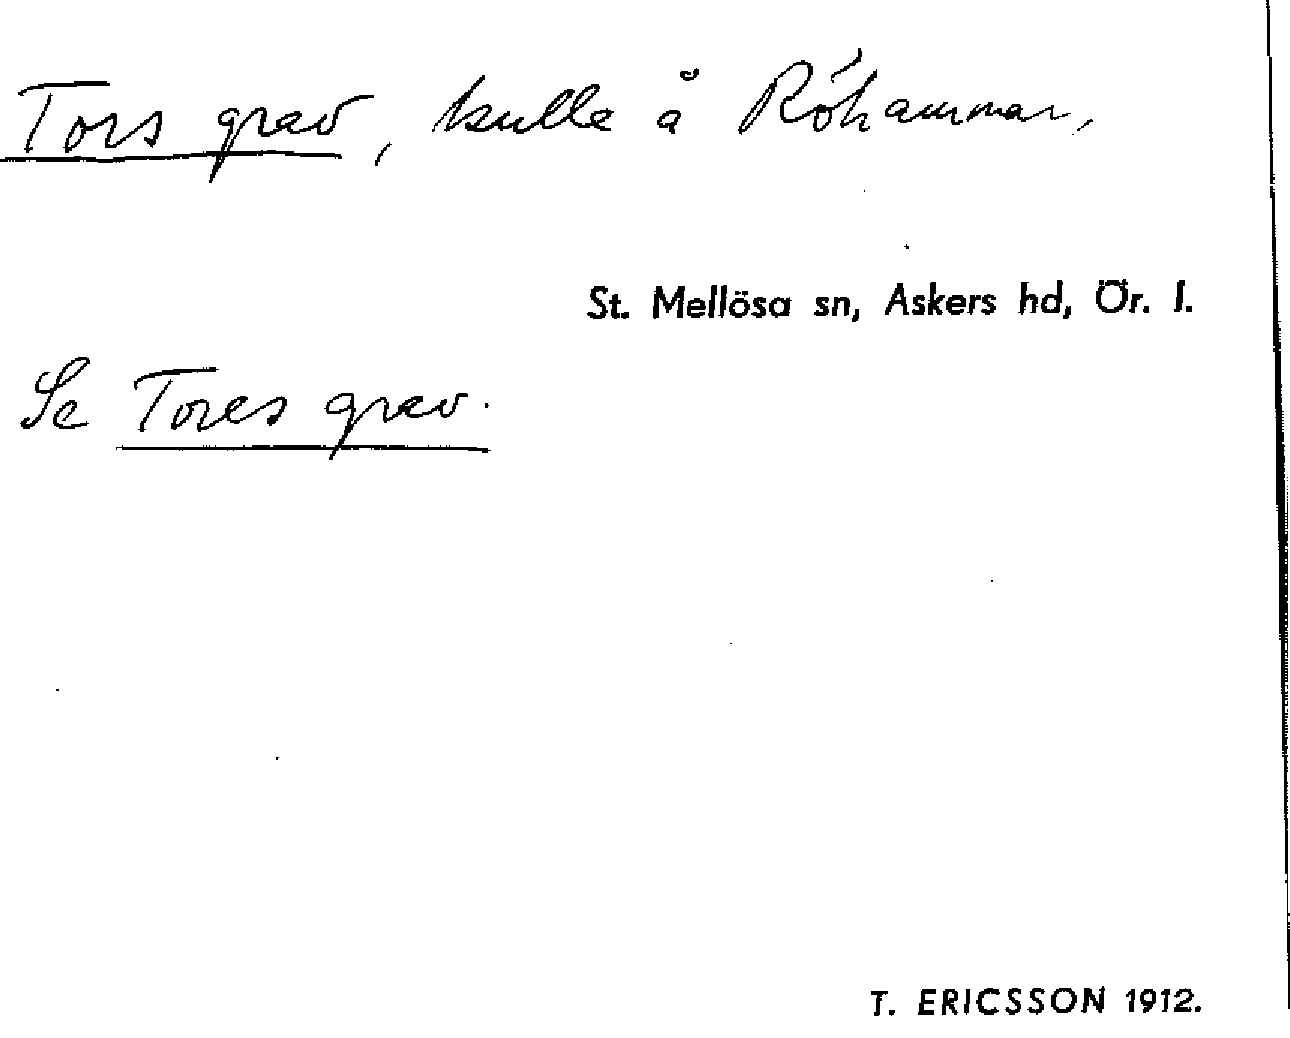 Tors grav, kulle å Röhammar,
St. Mellösa sn, Askers hd, Ör. l.
Se Tores grav.
T. ERICSSON 1912.